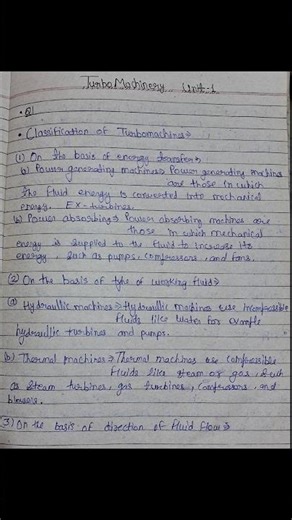 Turbo Machinery Unit-1
• Q1
• Classification of Turbomachines⇒
(1) On the basis of energy
Power generating machines⇒ Power generating machines
are those in which
the fluid energy is converted into mechanical
energy. Ex - turbines
Power absorbing⇒ Power absorbing machines are
those in which mechanical
energy is supplied to the fluid to increase its
energy. Such as pupps, compressors, and fans.
(2) On the basis of type of working fluid⇒
(a) Hydraullic machines⇒ Hydraullic machines use incompressible
fluids like water for example
hydraullic turbines and pumps.
(b) Thermal machines⇒ Thermal machines use compressible
fluids like steam or gas, such
as steam turbines, gas turbines, compressors and
blowers.
3) On the basis of direction of fluid flow⇒